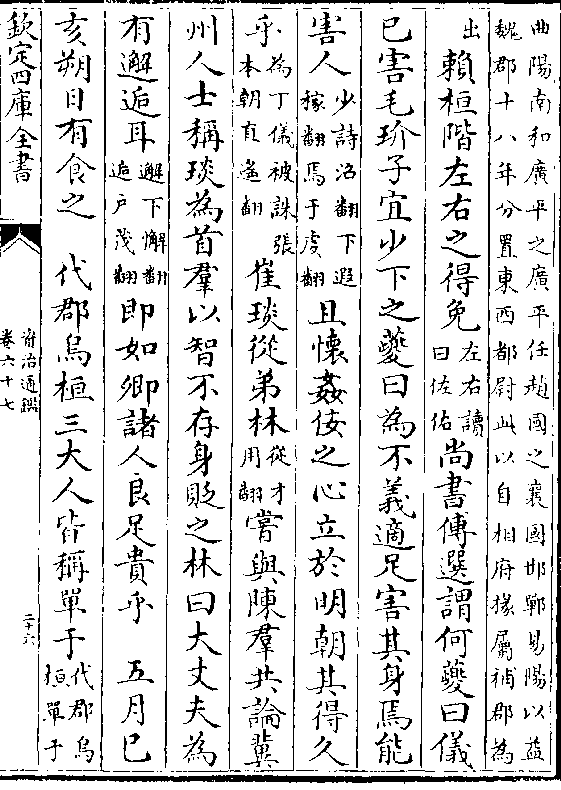 曲陽南和廣平之廣平任趙國之襄國邯鄲易陽以益
魏郡十八年分置東西都尉此以自相府掾屬補郡為
出賴桓階左右之得免左右讀曰佐佑尚書傅選謂何夔曰儀
已害毛玠子宜少下之夔曰為不義適足害其身焉能
害人少詩沼翻下遐稼翻焉于虔翻且懷姦佞之心立於明朝其得久
乎為丁儀被誅張本朝直遙翻崔琰從弟林從才用翻嘗與陳羣共論冀
州人士稱琰為首羣以智不存身貶之林曰大丈夫為
有邂逅耳邂下懈翻逅戶茂翻即如卿諸人良足貴乎 五月巳
亥朔日有食之 代郡烏桓三大人皆稱單于代郡烏桓單于
欽定四庫全書
資治通鑑
卷六十七
二十六